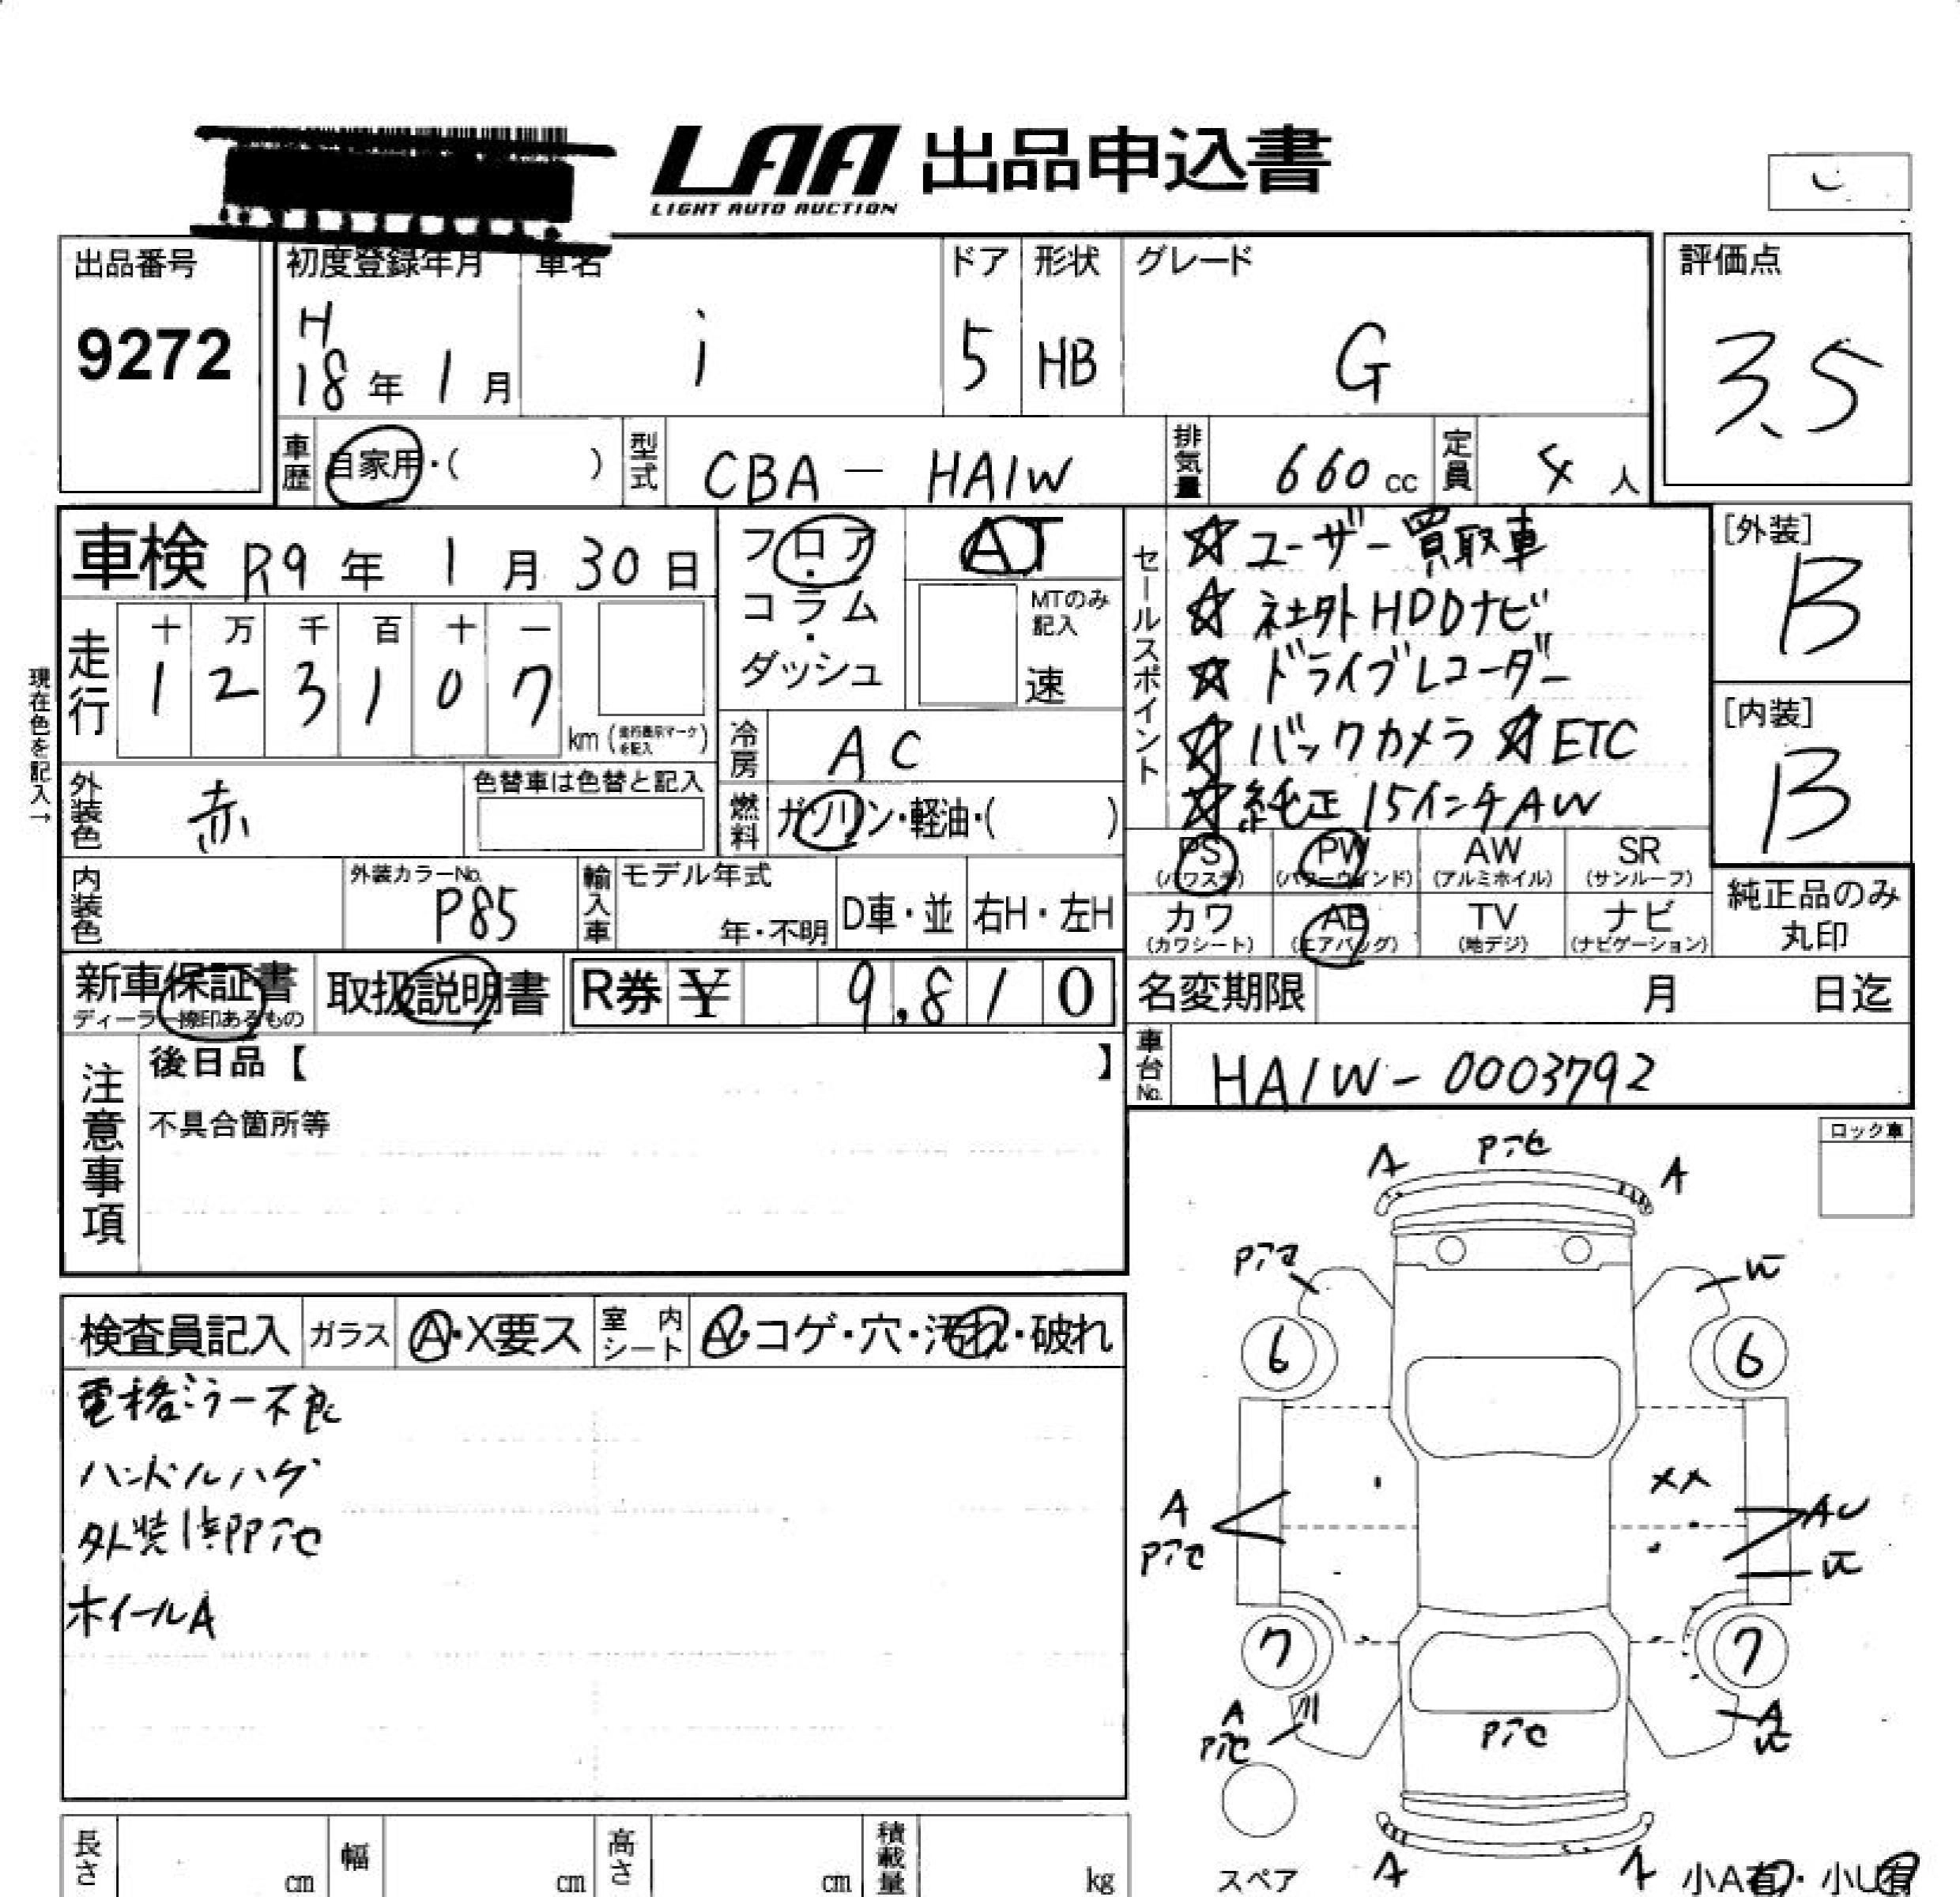 LAA 出品申込書
LIGHT AUTO AUCTION
出品番号
9272
初度登録年月
H
18年 1月
車名
i
ドア
5
形状
HB
グレード
G
評価点
3.5
車歴 自家用・( )
型式 CBA - HA1W
排気量 660 cc
定員 4 人
車検 R9年 1月 30日
フロア・コラム・ダッシュ
AT
MTのみ記入
速
セールスポイント
☆ユーザー買取車
☆社外HDDナビ
☆ドライブレコーダー
☆バックカメラ ☆ETC
☆純正15インチAW
[外装]
B
[内装]
B
現在色を記入→
走行
十 万 千 百 十 一
1 2 3 1 0 7
km (走行表示マークを記入)
冷房 AC
外装色 赤
色替車は色替と記入
燃料 ガソリン・軽油・( )
PS (パワステ)
PW (パワーウインド)
AW (アルミホイル)
SR (サンルーフ)
内装色
外装カラーNo.
P85
輸入車
モデル年式
年・不明
D車・並
右H・左H
カワ (カワシート)
AB (エアバッグ)
TV (地デジ)
ナビ (ナビゲーション)
純正品のみ丸印
新車保証書
ディーラー捺印あるもの
取扱説明書
R券 ¥ 9,810
名変期限 月 日迄
車台No. HA1W-0003792
注意事項
後日品【 】
不具合箇所等
ロック車
検査員記入
ガラス A・X要ス
室内シート A・コゲ・穴・汚れ・破れ
電格ミラー不良
ハンドルハゲ
ホイールA
A
A
6
6
XX
A
AU
7
7
A
A
A
A
スペア
小A有・小U有
長さ cm
幅 cm
高さ cm
積載量 kg